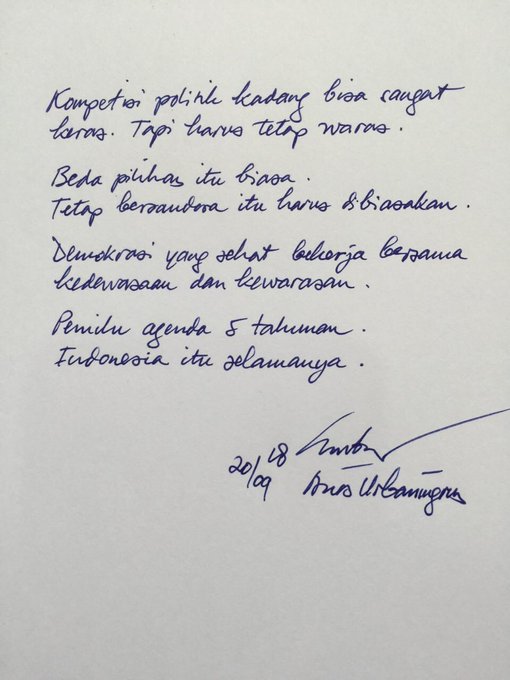 Kompetisi politik kadang bisa sangat
keras. Tapi harus tetap waras.
Beda pilihan itu biasa.
Tetap bersaudara itu harus dibiasakan.
Demokrasi yang sehat bekerja bersama
kedewasaan dan kewarasan.
Pemilu agenda 5 tahunan.
Indonesia itu selamanya.
20/09 18
Anas Urbaningrum